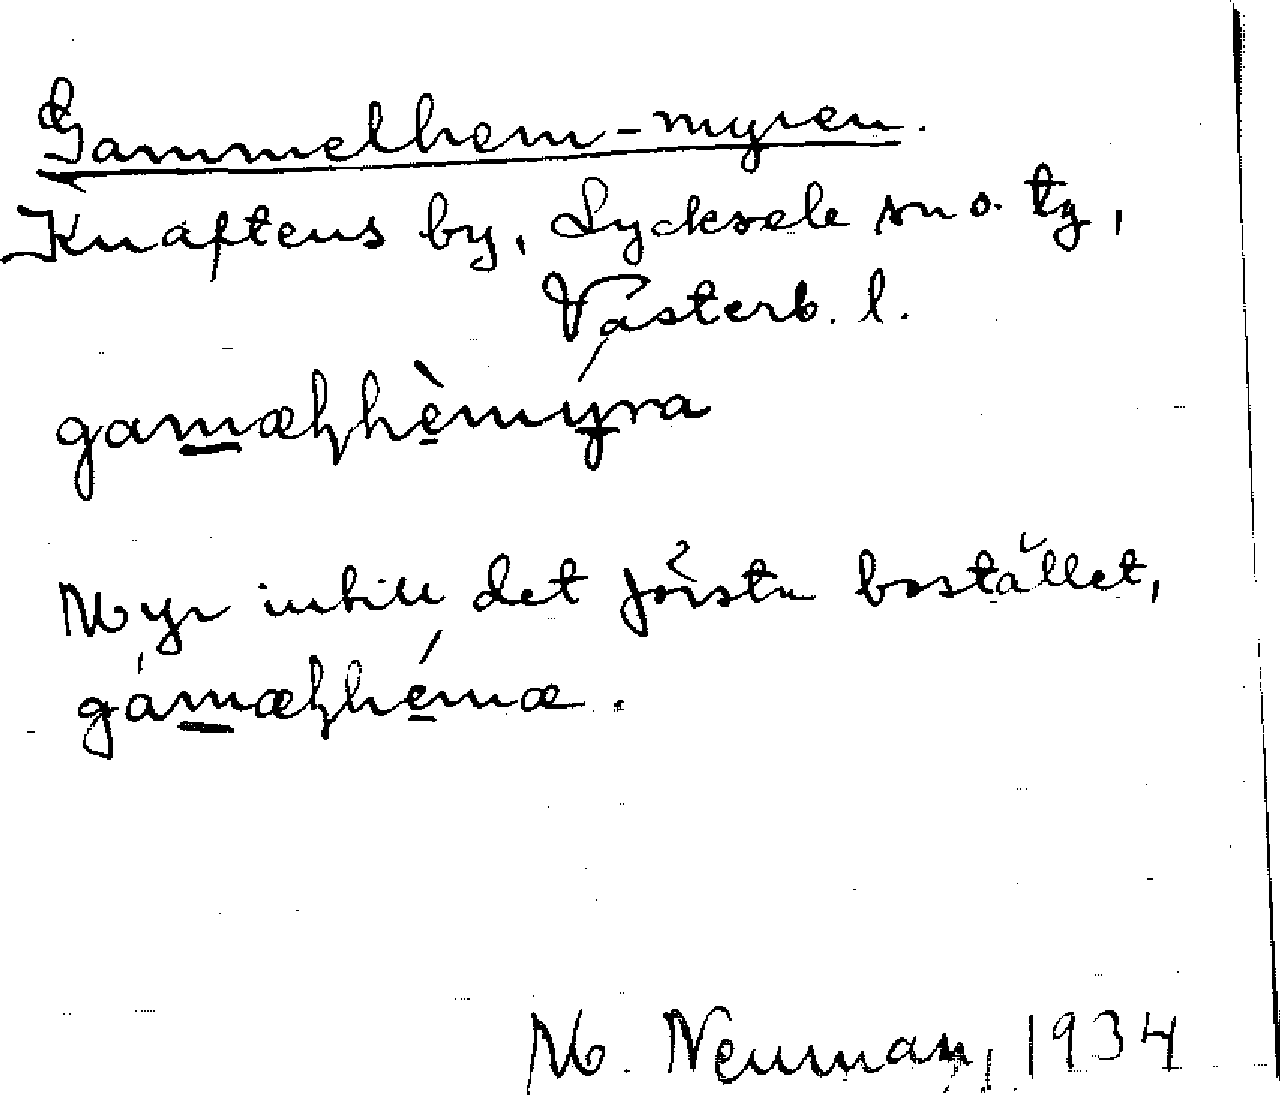 Gammelhem-myren.
Knaftens by, Lycksele sn o. tg,
Västerb. l.
gamæɬhèmýra
Myr intill det första bostället,
gámæɬhémæ.
M. Neuman, 1934